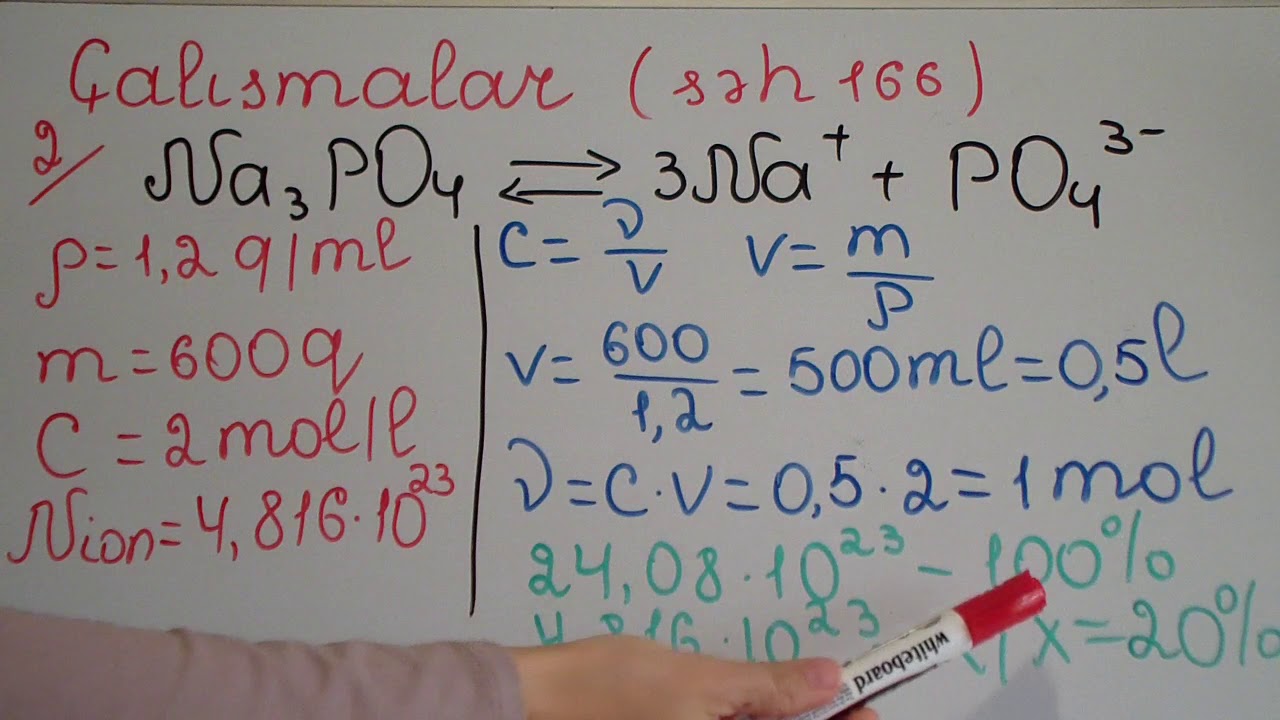 Çalısmalar (səh 166)
2/ Na₃PO₄ ⇌ 3Na⁺ + PO₄³⁻
ρ=1,2 q/ml
m=600q
C=2mol/l
Nion=4,816·10²³
C=ν/V V=m/ρ
V=600/1,2=500ml=0,5l
ν=C·V=0,5·2=1mol
24,08·10²³ – 100%
4,816·10²³ x=20%
whiteboard